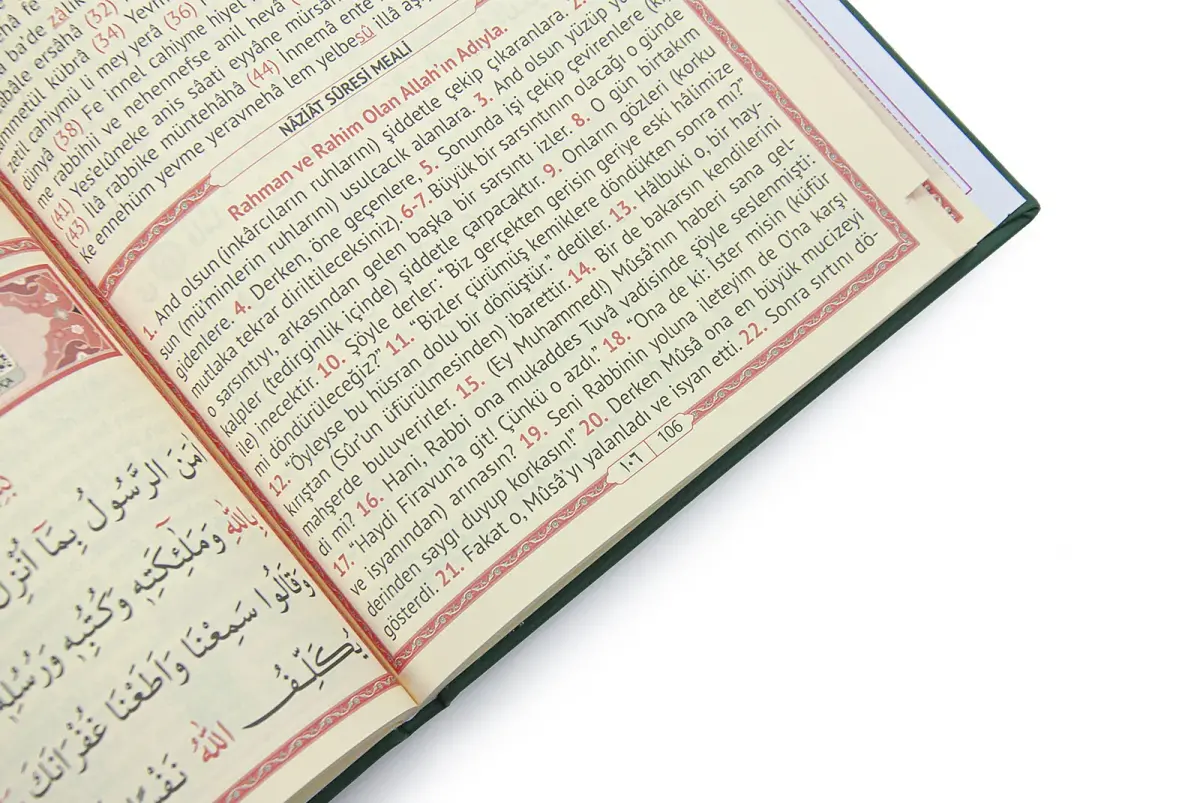 ba'de zâlik
(32)
Yevm
bâile ersâhâ
(34)
cahiymü li mey yerâ (36)
dünyâ (38) Fe innel cahiyme hiyel
me rabbihî ve nehennefse anil hevâ
(41) Yes'elûneke anis sâati eyyâne mürsâ
(43) ilâ rabbike müntehâhâ (44) İnnemâ ente
Ke ennehüm yevme yeravnehâ lem yelbesû illâ aşi
NÂZİÂT SÛRESİ MEALİ
Rahman ve Rahim Olan Allah'ın Adıyla.
1. And olsun (inkârcıların ruhlarını) şiddetle çekip çıkaranlara. 2.
sun (müminlerin ruhlarını) usulcacık alanlara. 3. And olsun yüzüp yü
gidenlere. 4. Derken, öne geçenlere, 5. Sonunda işi çekip çevirenlere (k
mutlaka tekrar diriltileceksiniz). 6-7. Büyük bir sarsıntının olacağı o günde
o sarsıntıyı, arkasından gelen başka bir sarsıntı izler. 8. O gün birtakım
kalpler (tedirginlik içinde) şiddetle çarpacaktır. 9. Onların gözleri (korku
ile) inecektir. 10. Şöyle derler: "Biz gerçekten gerisin geriye eski hâlimize
mi döndürüleceğiz?" 11. "Bizler çürümüş kemiklere döndükten sonra mı?"
12. "Öyleyse bu hüsran dolu bir dönüştür." dediler. 13. Hâlbuki o, bir hay-
kırıştan (Sûr'un üfürülmesinden) ibarettir. 14. Bir de bakarsın kendilerini
mahşerde buluverirler. 15. (Ey Muhammed!) Mûsâ'nın haberi sana gel-
di mi? 16. Hani, Rabbi ona mukaddes Tuvâ vadisinde şöyle seslenmişti:
17. "Haydi Firavun'a git! Çünkü o azdı." 18. "Ona de ki: İster misin (küfür
ve isyanından) arınasın? 19. Seni Rabbinin yoluna ileteyim de O'na karşı
derinden saygı duyup korkasın!" 20. Derken Mûsâ ona en büyük mucizeyi
gösterdi. 21. Fakat o, Mûsâ'yı yalanladı ve isyan etti. 22. Sonra sırtını dö-
١٠٦ 106
اٰمَنَ الرَّسُولُ بِمَٓا اُنْزِلَ
بِاللّٰهِ وَمَلٰٓئِكَتِه۪ وَكُتُبِه۪ وَرُسُلِه۪
وَقَالُوا سَمِعْنَا وَاَطَعْنَا غُفْرَانَكَ
يُكَلِّفُ اللّٰهُ نَفْسًا